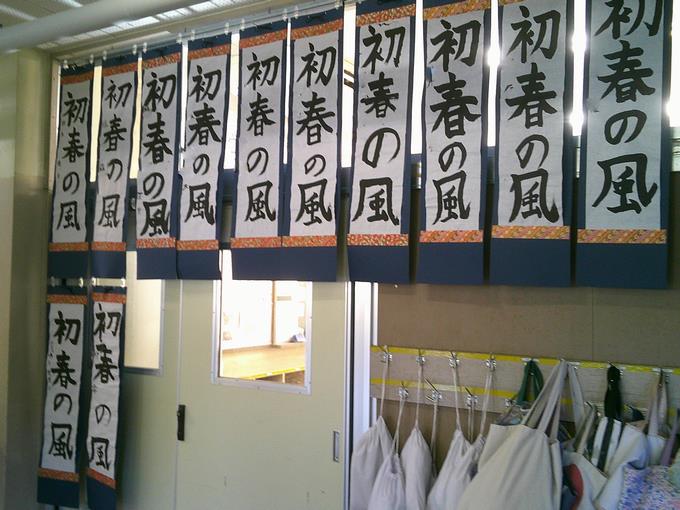 初春の風
初春の風
初春の風
初春の風
初春の風
初春の風
初春の風
初春の風
初春の風
初春の風
初春の風
初春の風